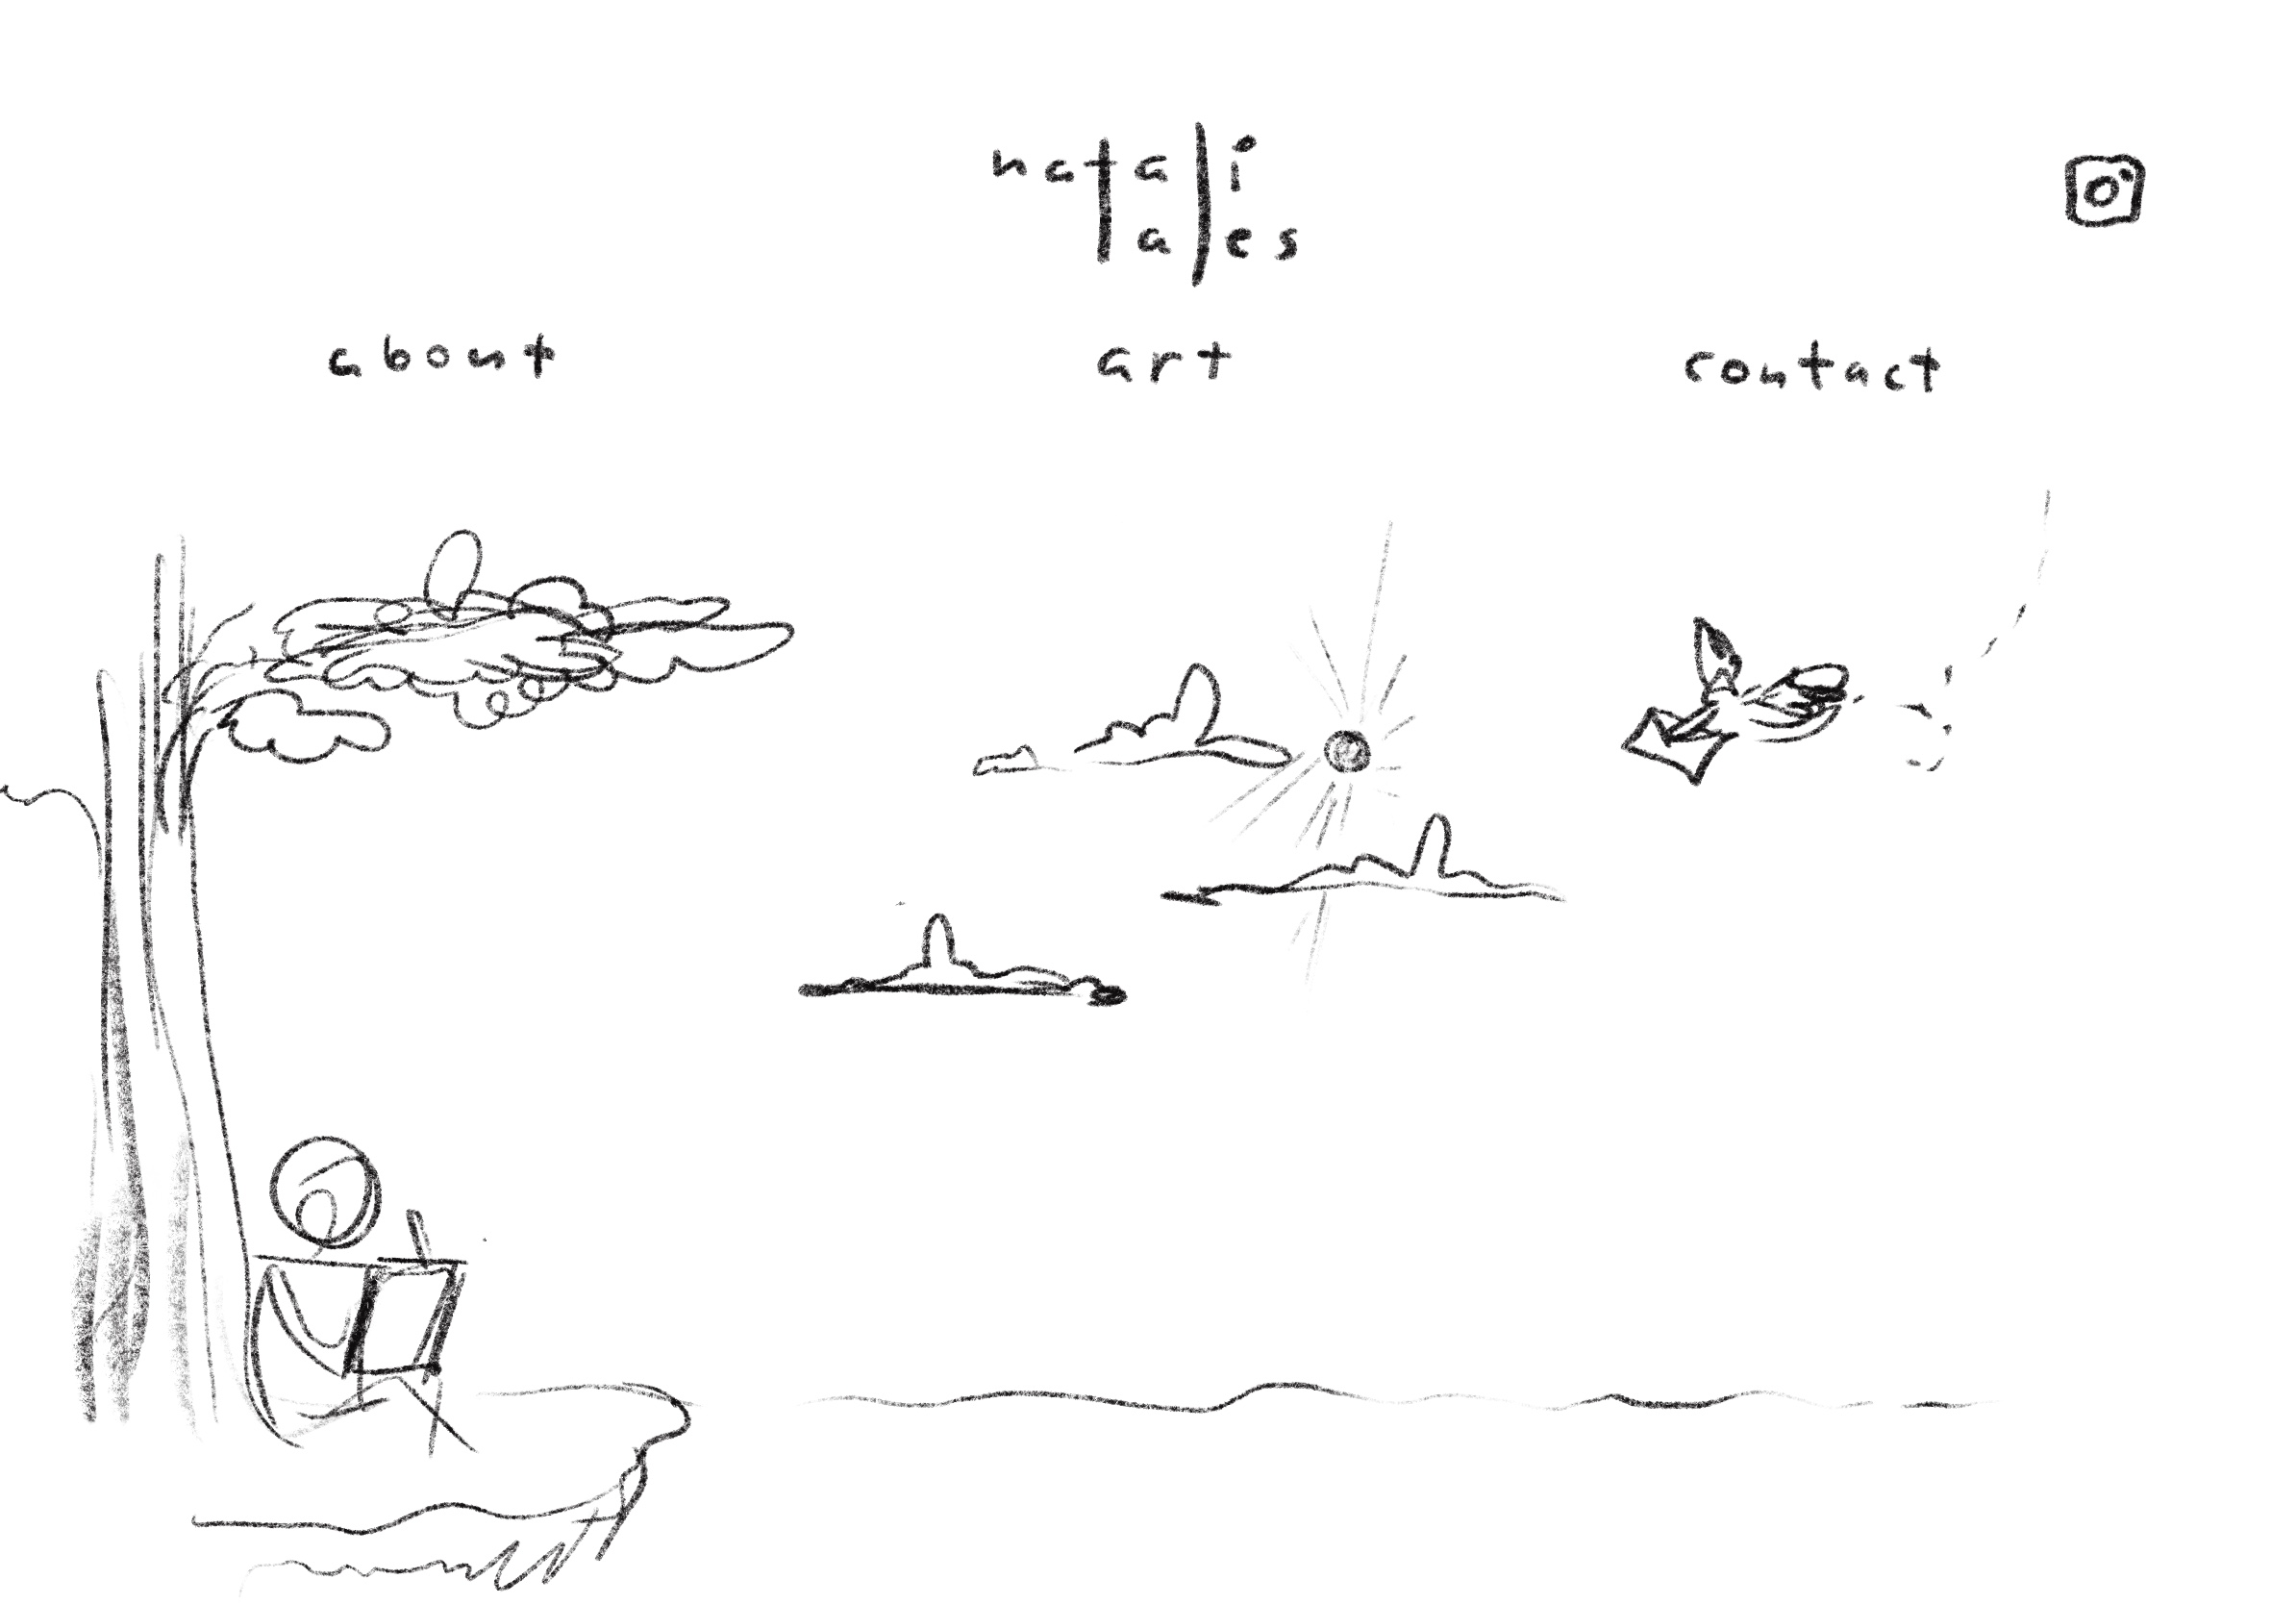 natali
tales
about
art
contact